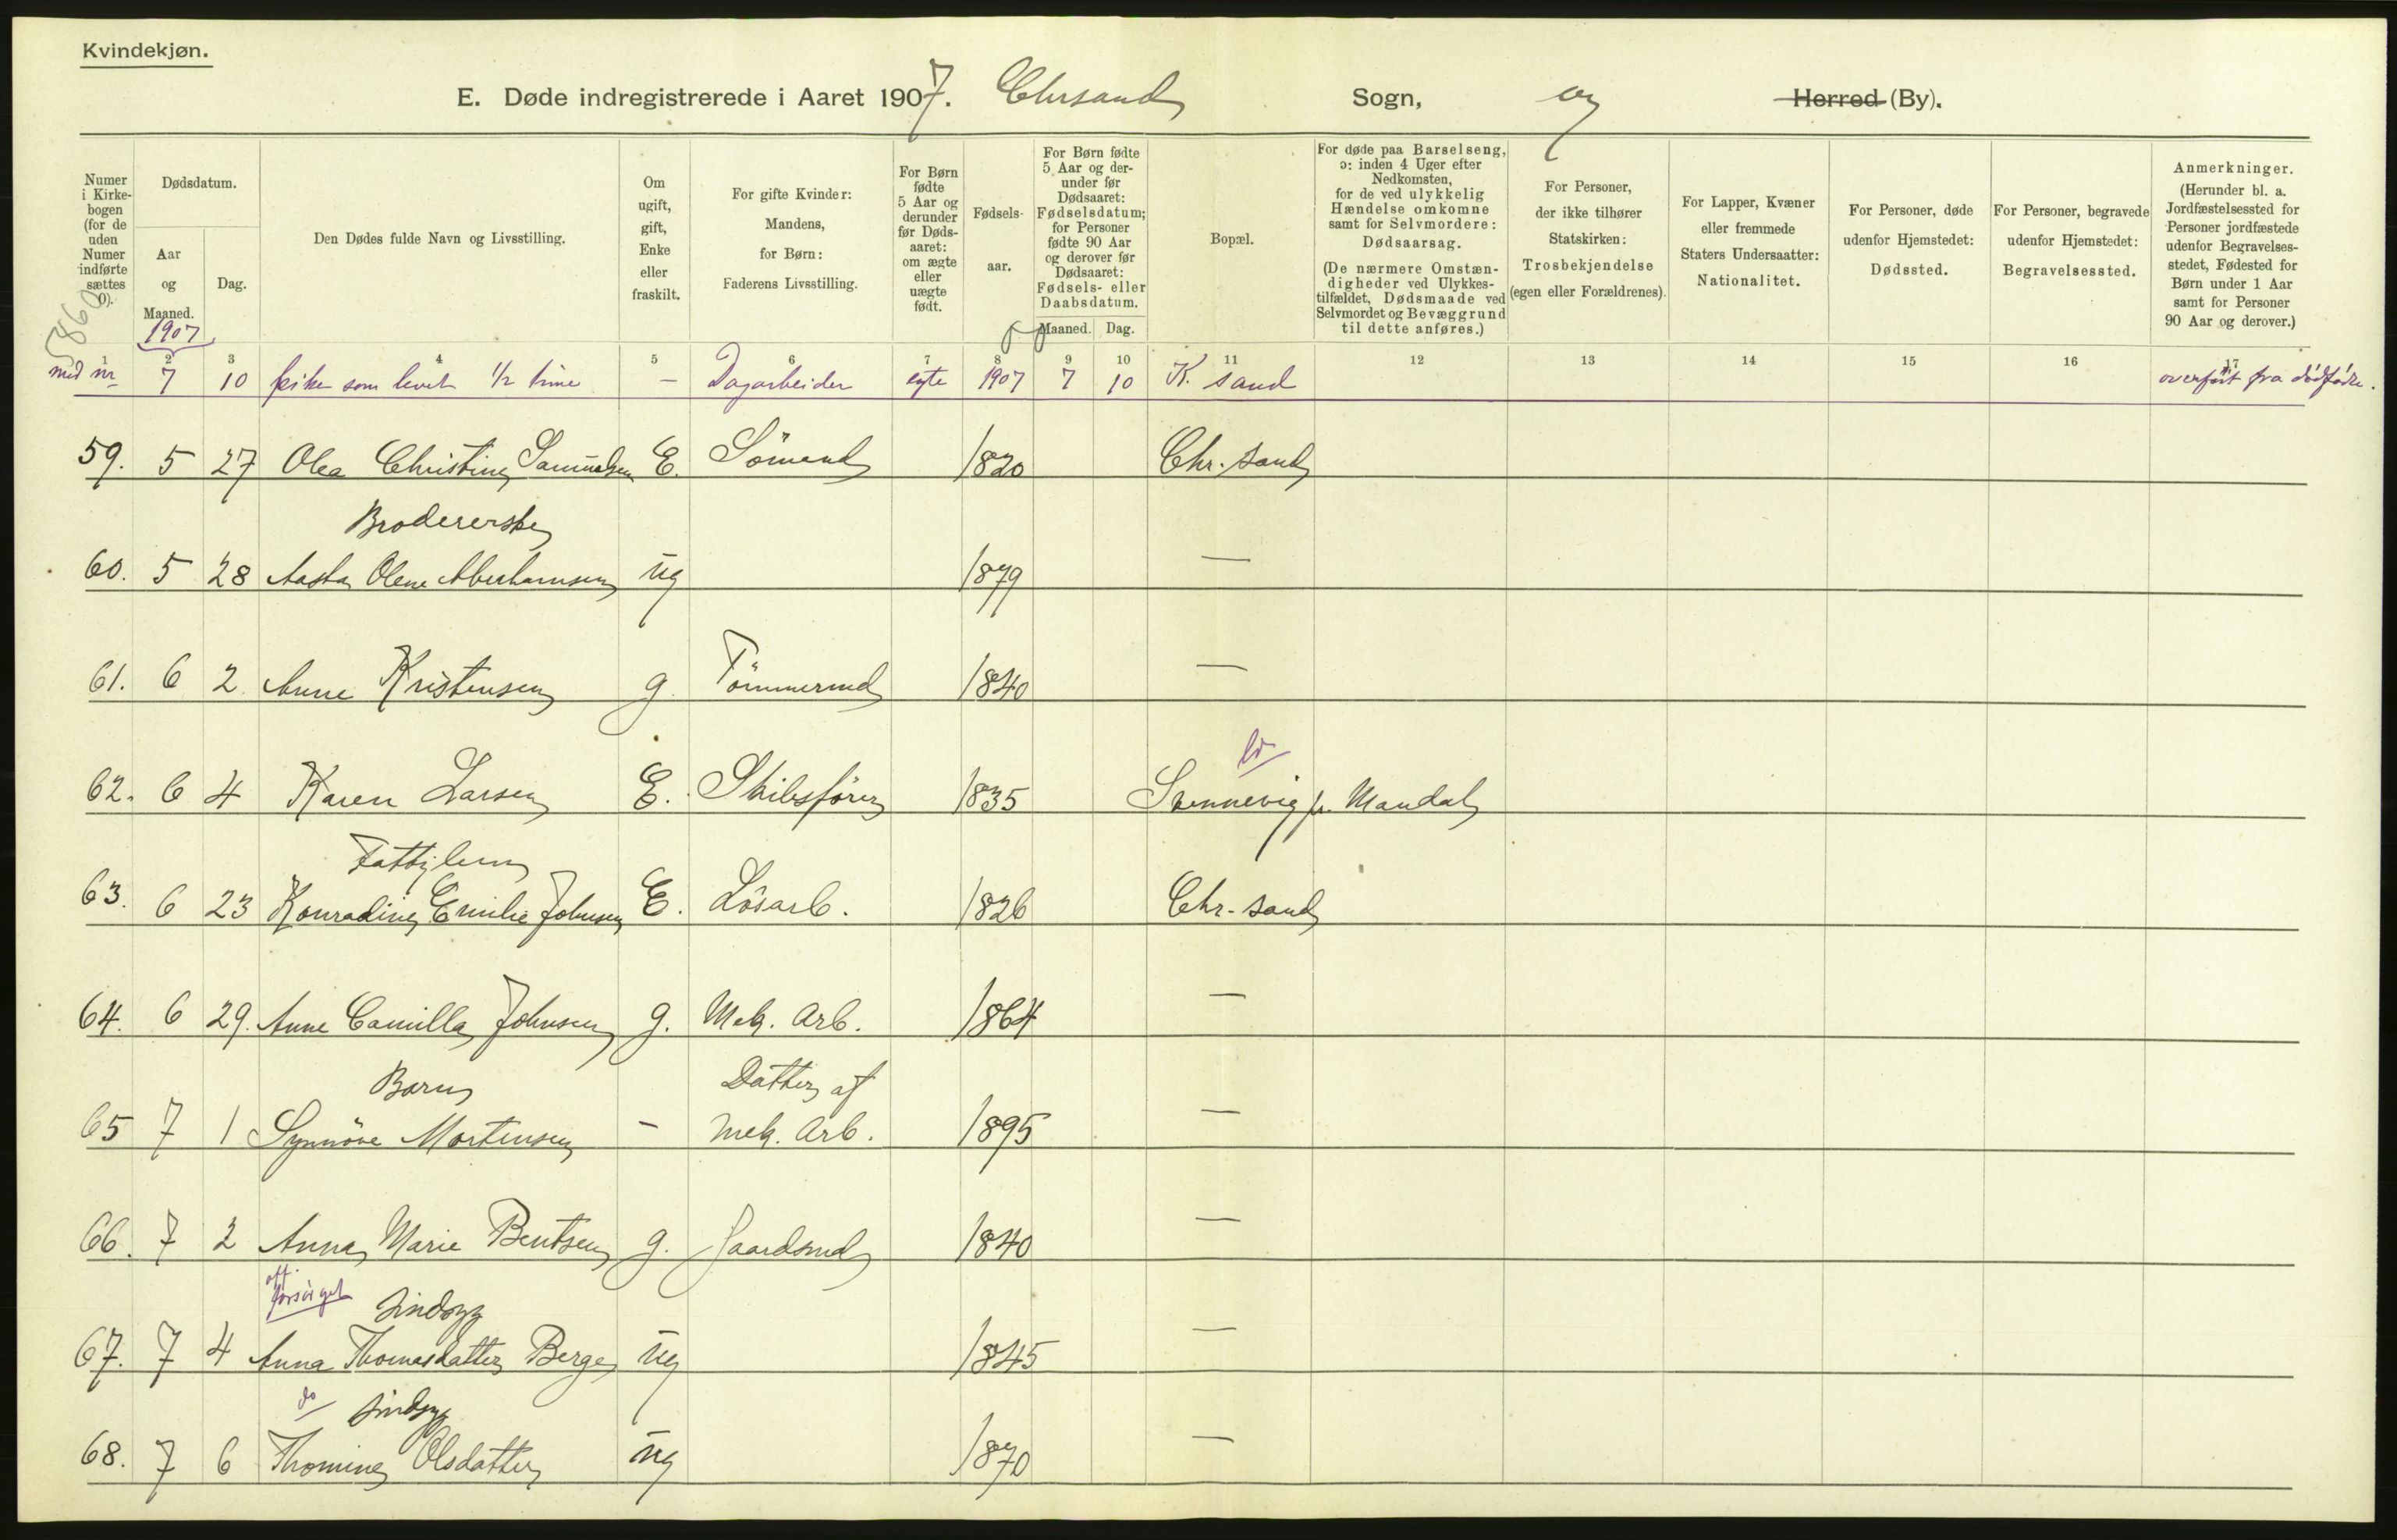 Kvindekjøn.
E. Døde indregistrerede i Aaret 1907. Chrsand Sogn, og Herred (By).
Numer i Kirkebogen (for de uden Numer indførte sættes 0).
Dødsdatum.
Aar og Maaned.
1907
Dag.
Den Dødes fulde Navn og Livsstilling.
Om ugift, gift, Enke eller fraskilt.
For gifte Kvinder: Mandens, for Børn: Faderens Livsstilling.
For Børn fødte 5 Aar og derunder før Dødsaaret: om ægte eller uægte født.
Fødselsaar.
For Børn fødte 5 Aar og derunder før Dødsaaret: Fødselsdatum; for Personer fødte 90 Aar og derover før Dødsaaret: Fødsels- eller Daabsdatum.
Maaned. Dag.
Bopæl.
For døde paa Barselseng, ɔ: inden 4 Uger efter Nedkomsten, for de ved ulykkelig Hændelse omkomne samt for Selvmordere: Dødsaarsag.
(De nærmere Omstændigheder ved Ulykkestilfældet, Dødsmaade ved Selvmordet og Bevæggrund til dette anføres.)
For Personer, der ikke tilhører Statskirken: Trosbekjendelse (egen eller Forældrenes).
For Lapper, Kvæner eller fremmede Staters Undersaatter: Nationalitet.
For Personer, døde udenfor Hjemstedet: Dødssted.
For Personer, begravede udenfor Hjemstedet: Begravelsessted.
Anmerkninger.
(Herunder bl. a. Jordfæstelsessted for Personer jordfæstede udenfor Begravelsesstedet, Fødested for Børn under 1 Aar samt for Personer 90 Aar og derover.)
1 2 3 4 5 6 7 8 9 10 11 12 13 14 15 16 17
7 10 pike som levet 1/2 time - Dagarbeider egte 1907 7 10 K.sand overført fra dødfødte.
59. 5 27 Olea Christine Samuelsen E. Sömand 1820 Chr.sand
Brodererske
60. 5 28 Aasta Olene Abrahamsen ug 1879 —
61. 6 2 Anne Kristensen g. Tömmermd 1840 —
62. 6 4 Karen Larsen E. Skibsförer 1835 Svennevig pr. Mandal
Fattiglem
63. 6 23 Konradine Emilie Johnsen E. Lösarb. 1826 Chr.sand
64. 6 29. Anne Camilla Johnsen g. Mek. Arb. 1864 —
Barn Datter af
65 7 1 Synnöve Mortensen - Mek. Arb. 1895 —
66. 7 2 Anna Marie Bentsen g. Gaardmd 1840 —
off. forsörget Sindsyg
67. 7 4 Anna Thomasdatter Berge ug 1845 —
do Sindsyg
68. 7 6 Thomine Olsdatter ug 1870 —